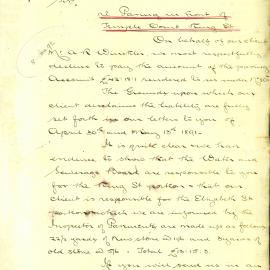 re Paving in front of
Temple Court King St
On behalf of our client
Mr A R we most respectfully
decline to pay the amount of the paving
Account rendered to
The Grounds upon which our
client disclaims the liability are fully
set forth in our letters to you of
April 30th and May 13th 1891.
It is quite clear we have
endeavour to show that the Water and
Sewerage Board are responsible to you
for the King St portion & that our
client is responsible for the Elizabeth St
portion which we are informed by the
Inspector of Pavements are made up as follows
33½ yards of New stone and 8 yards of
old stone Total
If you will send us in an